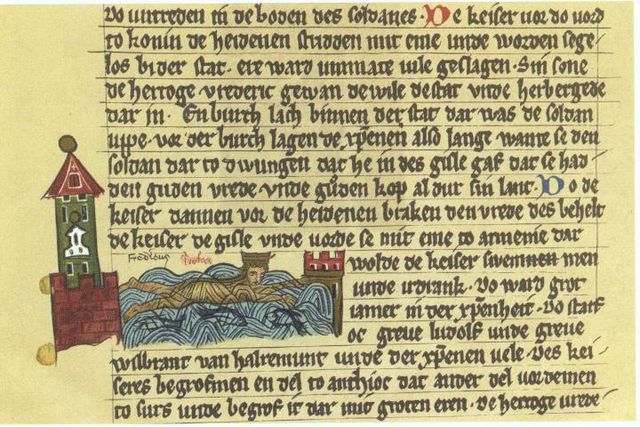 Do untreden in de boden des soldanes. De keiser vor do vord
to konin de heidenen stridden mit eme unde worden sege
los bi der stat. ere ward ummate vile geslagen. Sin sone
de hertoge vrederic gewan de wile de stat vnde herbergede
dar in. En burch lach binnen der stat dar was de soldan
uppe. vor der burch lagen de xp̄enen also lange wante se den
soldan dar to dwungen dat he in des gisle gaf dat se had
den guden vrede vnde guden kop al dur sin lant. Do de
keiser dannen vor de heidenen braken den vrede des behelt
de keiser de gisle vnde vorde se mit eme to armenie dar
Fredicus
wolde de keiser swemmen men
unde irdrank. Do ward grot
iamer in der xp̄enheit. Do starf
oc greve ludolf unde greve
wilbrant van halremunt unde der xp̄enen vele. Des kei
seres begrofmen en del to anthioc dat ander del vordemen
to surs unde begrof it dar mit groten eren. de hertoge vrede